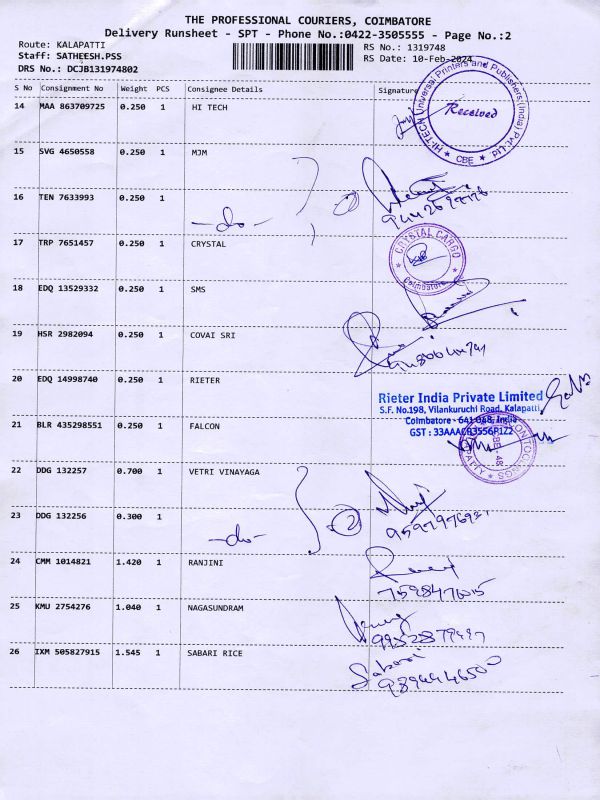 THE PROFESSIONAL COURIERS, COIMBATORE
Delivery Runsheet - SPT - Phone No.:0422-3505555 - Page No.:2
Route: KALAPATTI
RS No.: 1319748
Staff: SATHEESH.PSS
RS Date: 10-Feb-2024
DRS No.: DCJB131974802
S No Consignment No Weight PCS Consignee Details Signature
14 MAA 863709725 0.250 1 HI TECH
HI-TECH Universal Printers and Publishers (India) Pvt. Ltd.
Received
★ CBE ★
15 SVG 4650558 0.250 1 MJM
16 TEN 7633993 0.250 1
-do-
17 TRP 7651457 0.250 1 CRYSTAL
CRYSTAL CARGO
★ Coimbatore ★
18 EDQ 13529332 0.250 1 SMS
19 HSR 2982094 0.250 1 COVAI SRI
20 EDQ 14998740 0.250 1 RIETER
Rieter India Private Limited
S.F. No.198, Vilankuruchi Road, Kalapatti
Coimbatore - 641 048, India
GST : 33AAACR3556P1Z2
21 BLR 435298551 0.250 1 FALCON
22 DDG 132257 0.700 1 VETRI VINAYAGA
23 DDG 132256 0.300 1
-do-
24 CMM 1014821 1.420 1 RANJINI
25 KMU 2754276 1.040 1 NAGASUNDRAM
26 IXM 505827915 1.545 1 SABARI RICE
Sabari